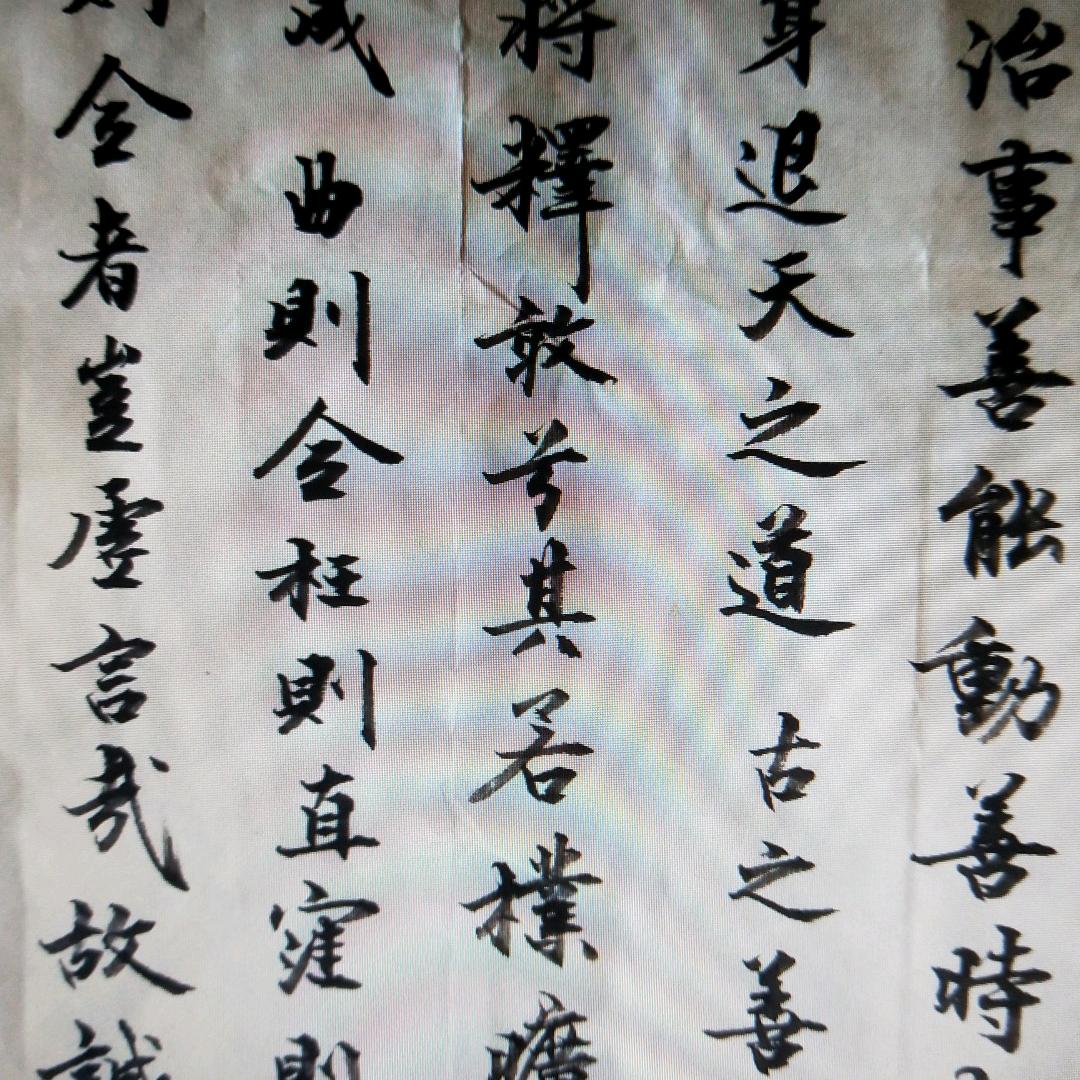 治事善能動善時
身退天之道 古之善
將釋敦兮其若樸曠
成 曲則全枉則直窪則
則全者豈虛言哉故誠